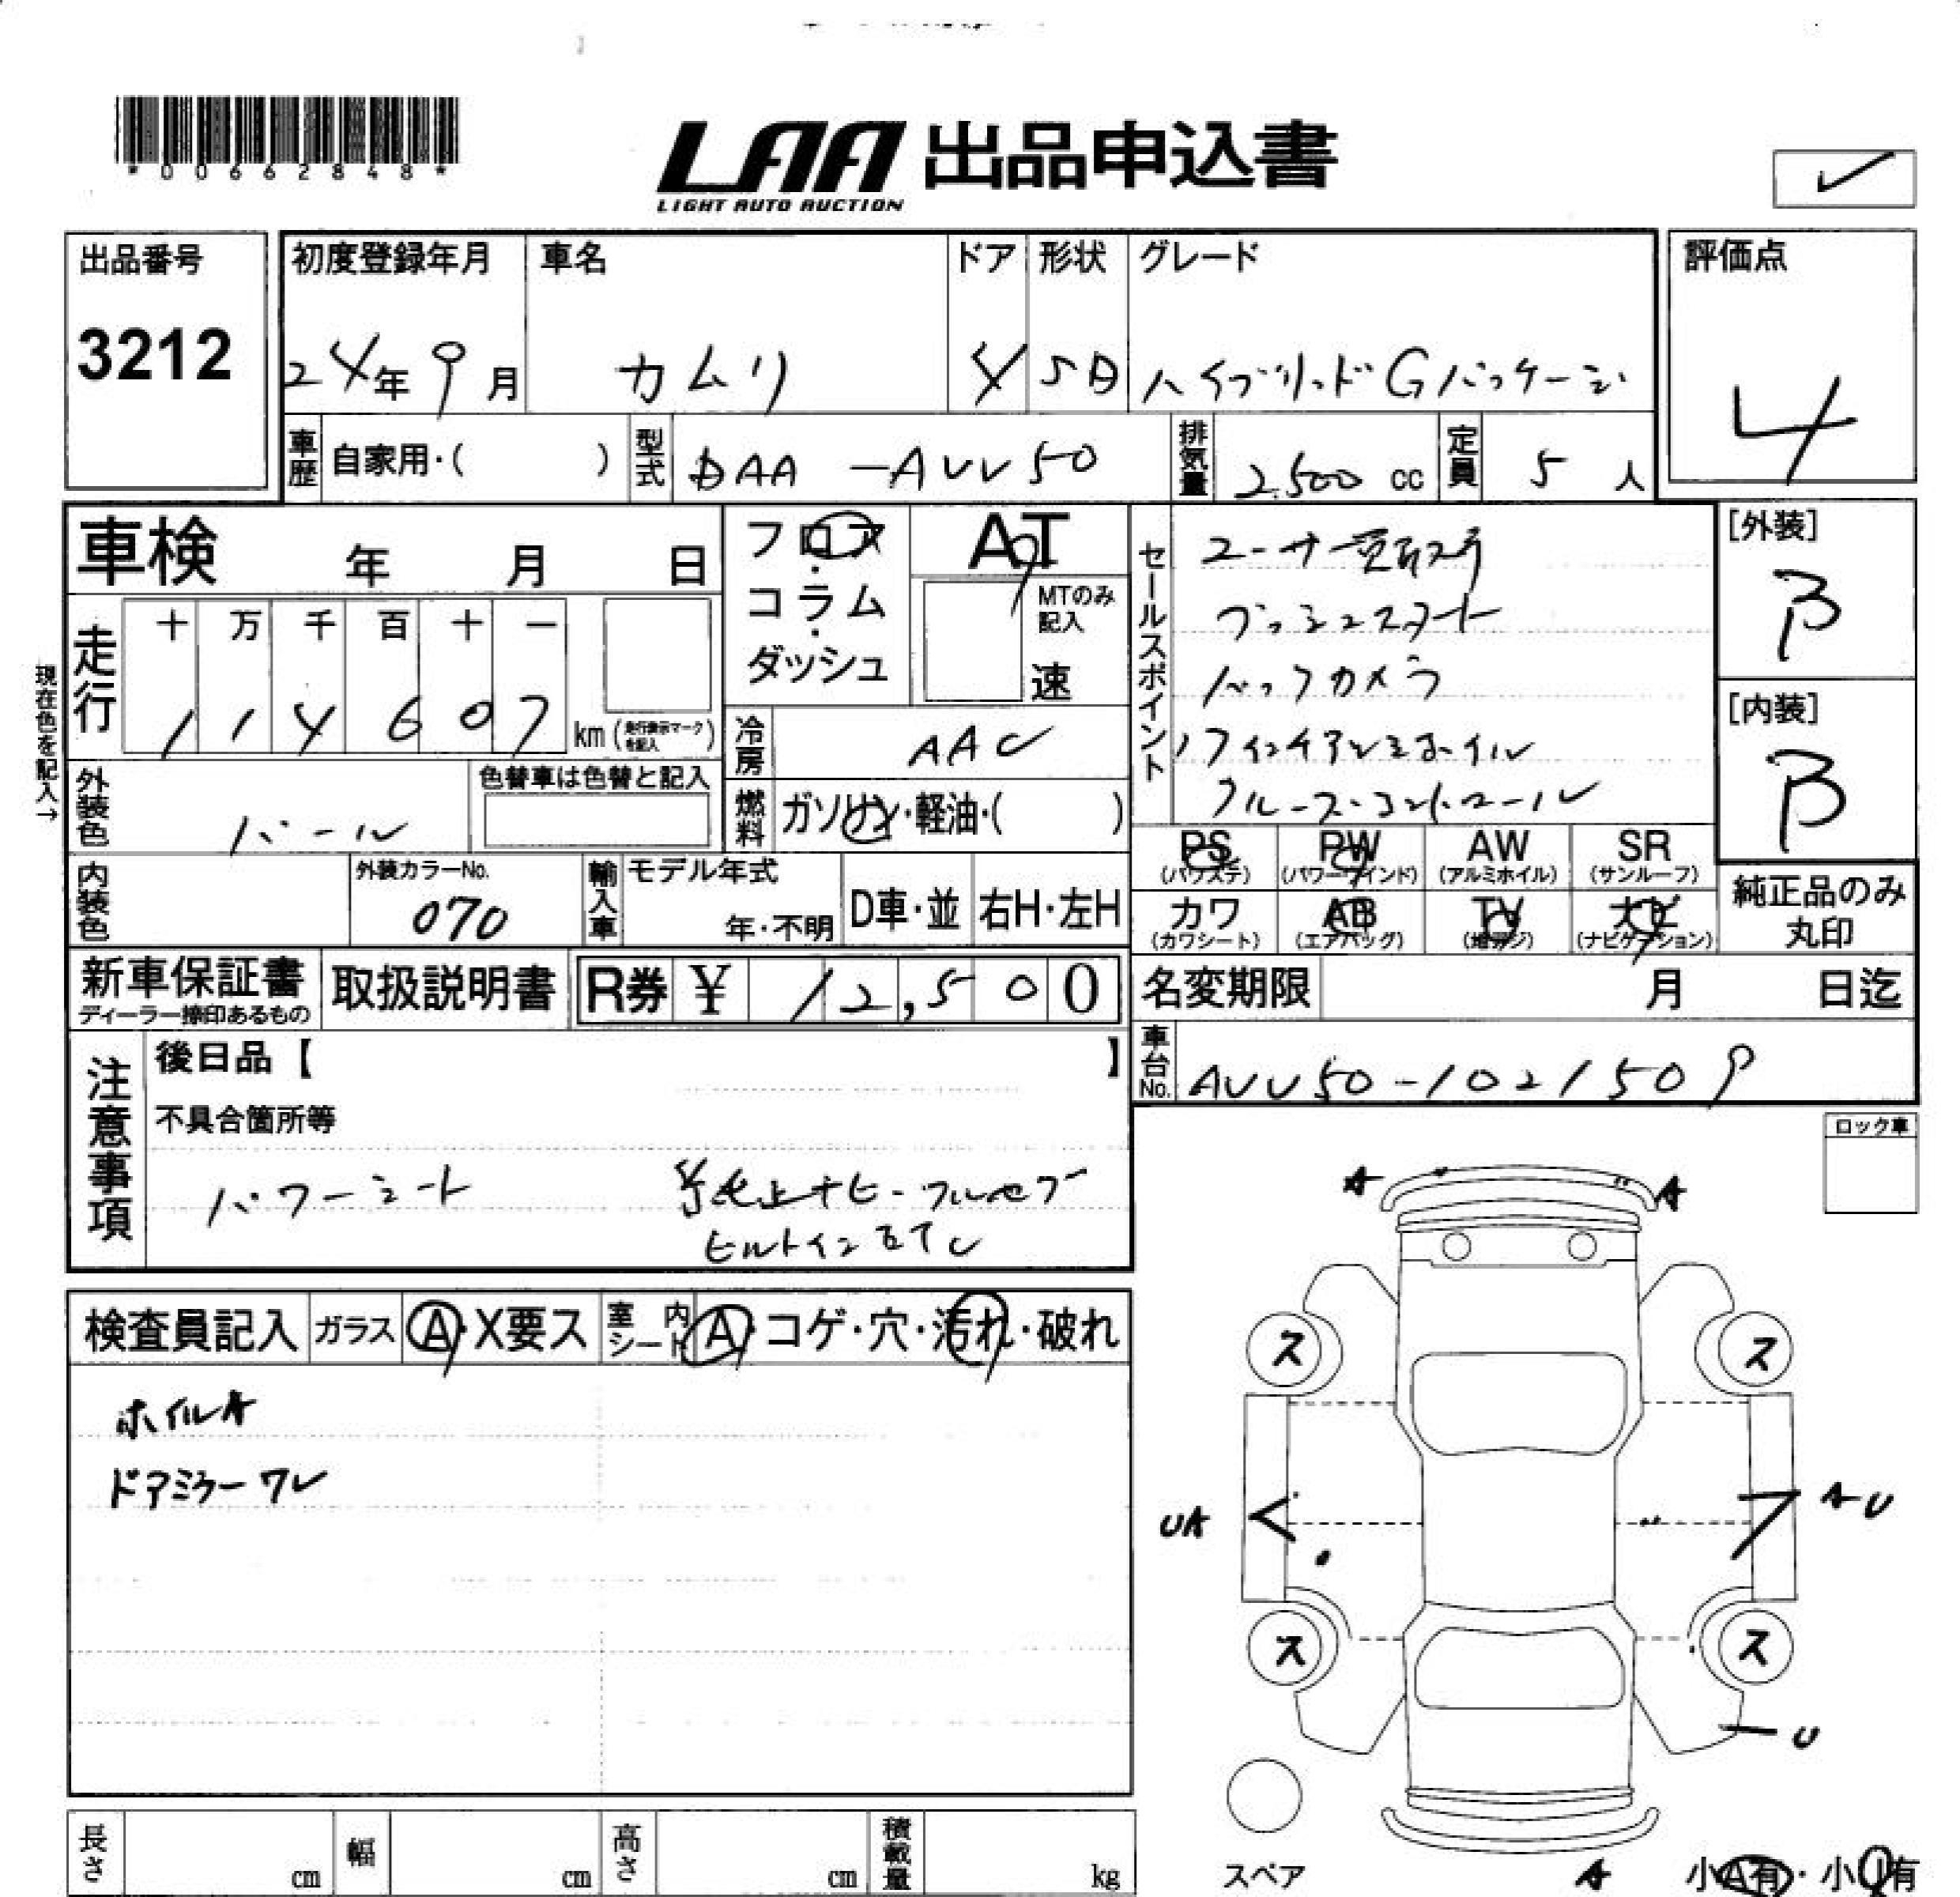 *00662848*
LAA 出品申込書
LIGHT AUTO AUCTION
出品番号
3212
初度登録年月
24年9月
車名
カムリ
ドア
4
形状
SD
グレード
ハイブリッドGパッケージ
評価点
4
車歴
自家用・( )
型式
DAA-AVV50
排気量
2,500 cc
定員
5 人
車検 年 月 日
フロア・コラム・ダッシュ
AT
MTのみ記入
速
セールスポイント
ユーザー買取車
プッシュスタート
バックカメラ
17インチアルミホイル
クルーズ・コントロール
[外装]
B
[内装]
B
現在色を記入→
走行
十 万 千 百 十 一
1 1 4 6 0 7 km (走行表示マークを記入)
冷房
AAC
燃料
ガソリン・軽油・( )
外装色
パール
色替車は色替と記入
内装色
外装カラーNo.
070
輸入車
モデル年式
年・不明
D車・並
右H・左H
PS (パワステ)
PW (パワーウインド)
AW (アルミホイル)
SR (サンルーフ)
カワ (カワシート)
AB (エアバッグ)
TV (地デジ)
ナビ (ナビゲーション)
純正品のみ丸印
新車保証書
ディーラー捺印あるもの
取扱説明書
R券 ¥ 12,500
名変期限 月 日迄
車台No.
AVV50-1021509
注意事項
後日品【 】
不具合箇所等
パワーシート
純正ナビ・フルセグ
ビルトインETC
ロック車
検査員記入
ガラス
A・X要ス
室内シート
A・コゲ・穴・汚れ・破れ
ホイルA
ドアミラーワレ
A
A
ス
ス
UA
AU
ス
ス
U
スペア
A
小A有・小U有
長さ cm
幅 cm
高さ cm
積載量 kg